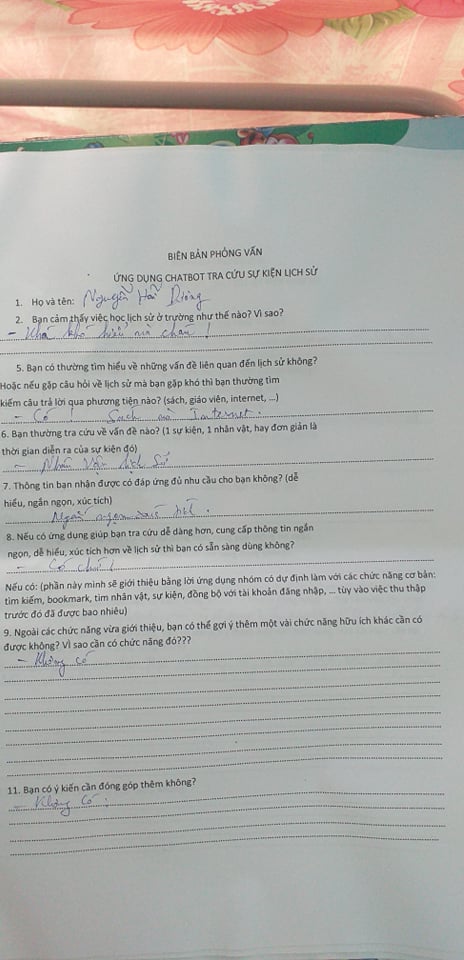 BIÊN BẢN PHỎNG VẤN
ỨNG DỤNG CHATBOT TRA CỨU SỰ KIỆN LỊCH SỬ
1. Họ và tên: Nguyễn Hải Dương
2. Bạn cảm thấy việc học lịch sử ở trường như thế nào? Vì sao?
- Khá khó hiểu và chán !
5. Bạn có thường tìm hiểu về những vấn đề liên quan đến lịch sử không?
Hoặc nếu gặp câu hỏi về lịch sử mà bạn gặp khó thì bạn thường tìm
kiếm câu trả lời qua phương tiện nào? (sách, giáo viên, internet, ...)
- Có ! Sách và Internet.
6. Bạn thường tra cứu về vấn đề nào? (1 sự kiện, 1 nhân vật, hay đơn giản là
thời gian diễn ra của sự kiện đó)
- Nhân vật lịch sử
7. Thông tin bạn nhận được có đáp ứng đủ nhu cầu cho bạn không? (dễ
hiểu, ngắn ngọn, xúc tích)
Ngắn ngọn
8. Nếu có ứng dụng giúp bạn tra cứu dễ dàng hơn, cung cấp thông tin ngắn
ngọn, dễ hiểu, xúc tích hơn về lịch sử thì bạn có sẵn sàng dùng không?
- Có chứ !
Nếu có: (phần này mình sẽ giới thiệu bằng lời ứng dụng nhóm có dự định làm với các chức năng cơ bản:
tìm kiếm, bookmark, tìm nhân vật, sự kiện, đồng bộ với tài khoản đăng nhập, ... tùy vào việc thu thập
trước đó đã được bao nhiêu)
9. Ngoài các chức năng vừa giới thiệu, bạn có thể gợi ý thêm một vài chức năng hữu ích khác cần có
được không? Vì sao cần có chức năng đó???
- Không có
11. Bạn có ý kiến cần đóng góp thêm không?
- Không có.